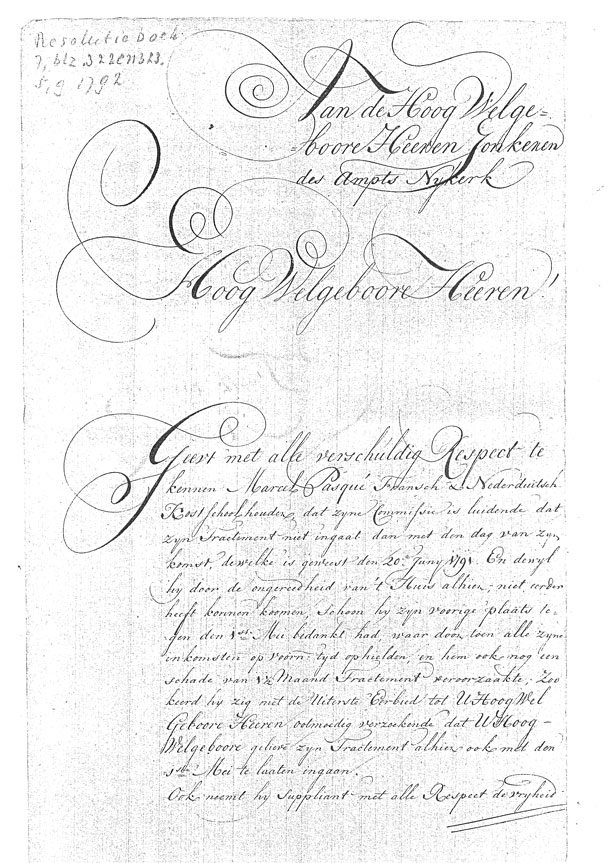 Resolutie boek
7, blz 322 en 323.
5, 9 1792
Aan de Hoog Welge=
=boore Heeren Jonkeren
des Ampts Nykerk
Hoog Welgeboore Heeren!
Geeft met alle verschuldig Respect te
kennen Marcel Pasqué Fransch & Nederduitsch
Kostschoolhouder, dat zyne Commissie is luidende dat
zyn Tractement niet ingaat dan met den dag van zyn
komst, dewelke is geweest den 20e Juny 1791. En dewyl
hy door de ongereedheid van 't Huis alhier, niet eerder
heeft konnen koomen, Schoon hy zyn voorige plaats te=
gen den 1ste Mei bedankt had, waar door toen alle zyne
inkomsten op voorn: tyd ophielden, en hem ook nog een
schade van 1½ Maand Tractement veroorzaakte; Zoo
keerd hy zig met de Uiterste Eerbied tot U Hoog Wel
Geboore Heeren ootmoedig verzoekende dat U Hoog-
Welgeboore gelieve zyn Tractement alhier ook met den
1ste Mei te laaten ingaan.
Ook neemt hy Suppliant met alle Respect de vryheid